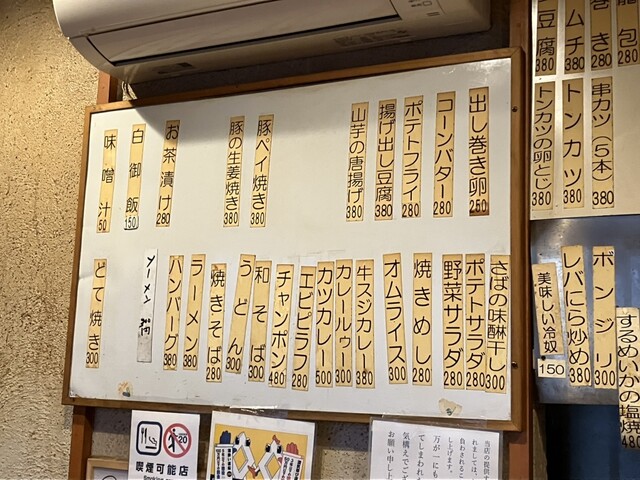 出し巻き卵 250
コーンバター 280
ポテトフライ 280
揚げ出し豆腐 380
山芋の唐揚げ 380
豚ペイ焼き 380
豚の生姜焼き 380
お茶漬け 280
白御飯 150
味噌汁 50
さばの味醂干し 300
ポテトサラダ 280
野菜サラダ 280
焼きめし 280
オムライス 300
牛スジカレー 380
カレールゥー 380
カツカレー 500
エビピラフ 280
チャンポン 480
和そば 300
うどん 300
焼きそば 280
ラーメン 380
ハンバーグ 380
ソーメン
とて焼き 300
包
巻き 380
ムチ 380
豆腐 380
串カツ(5本) 380
トンカツ 380
トンカツの卵とじ 380
ボンジリ 300
レバにら炒め 380
美味しい冷奴 150
するめいかの塩焼 480
喫煙可能店
20
当店の提供す
れましては、
負わされるこ
し上げます。
万が一にも
てしまわれ
気構えでご
お願い申し上